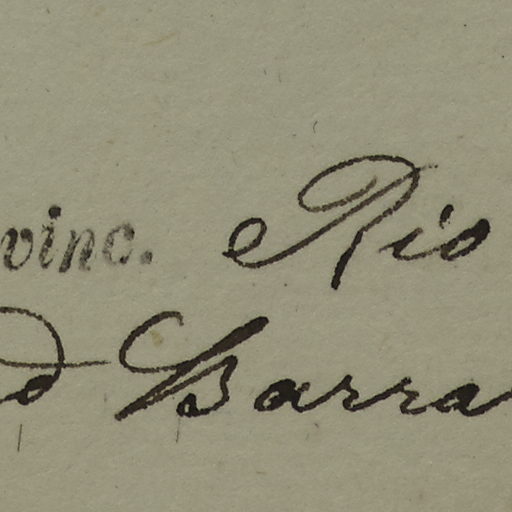 vinc. Rio
d Barra